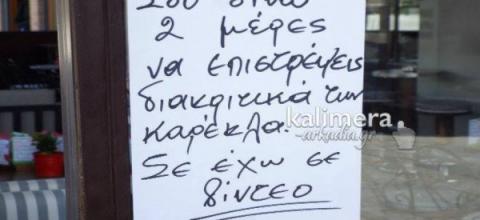 Σου δίνω
2 μέρες
να επιστρέψεις
διακριτικά την
καρέκλα.
Σε έχω σε
βίντεο
kalimera
arkadia.gr